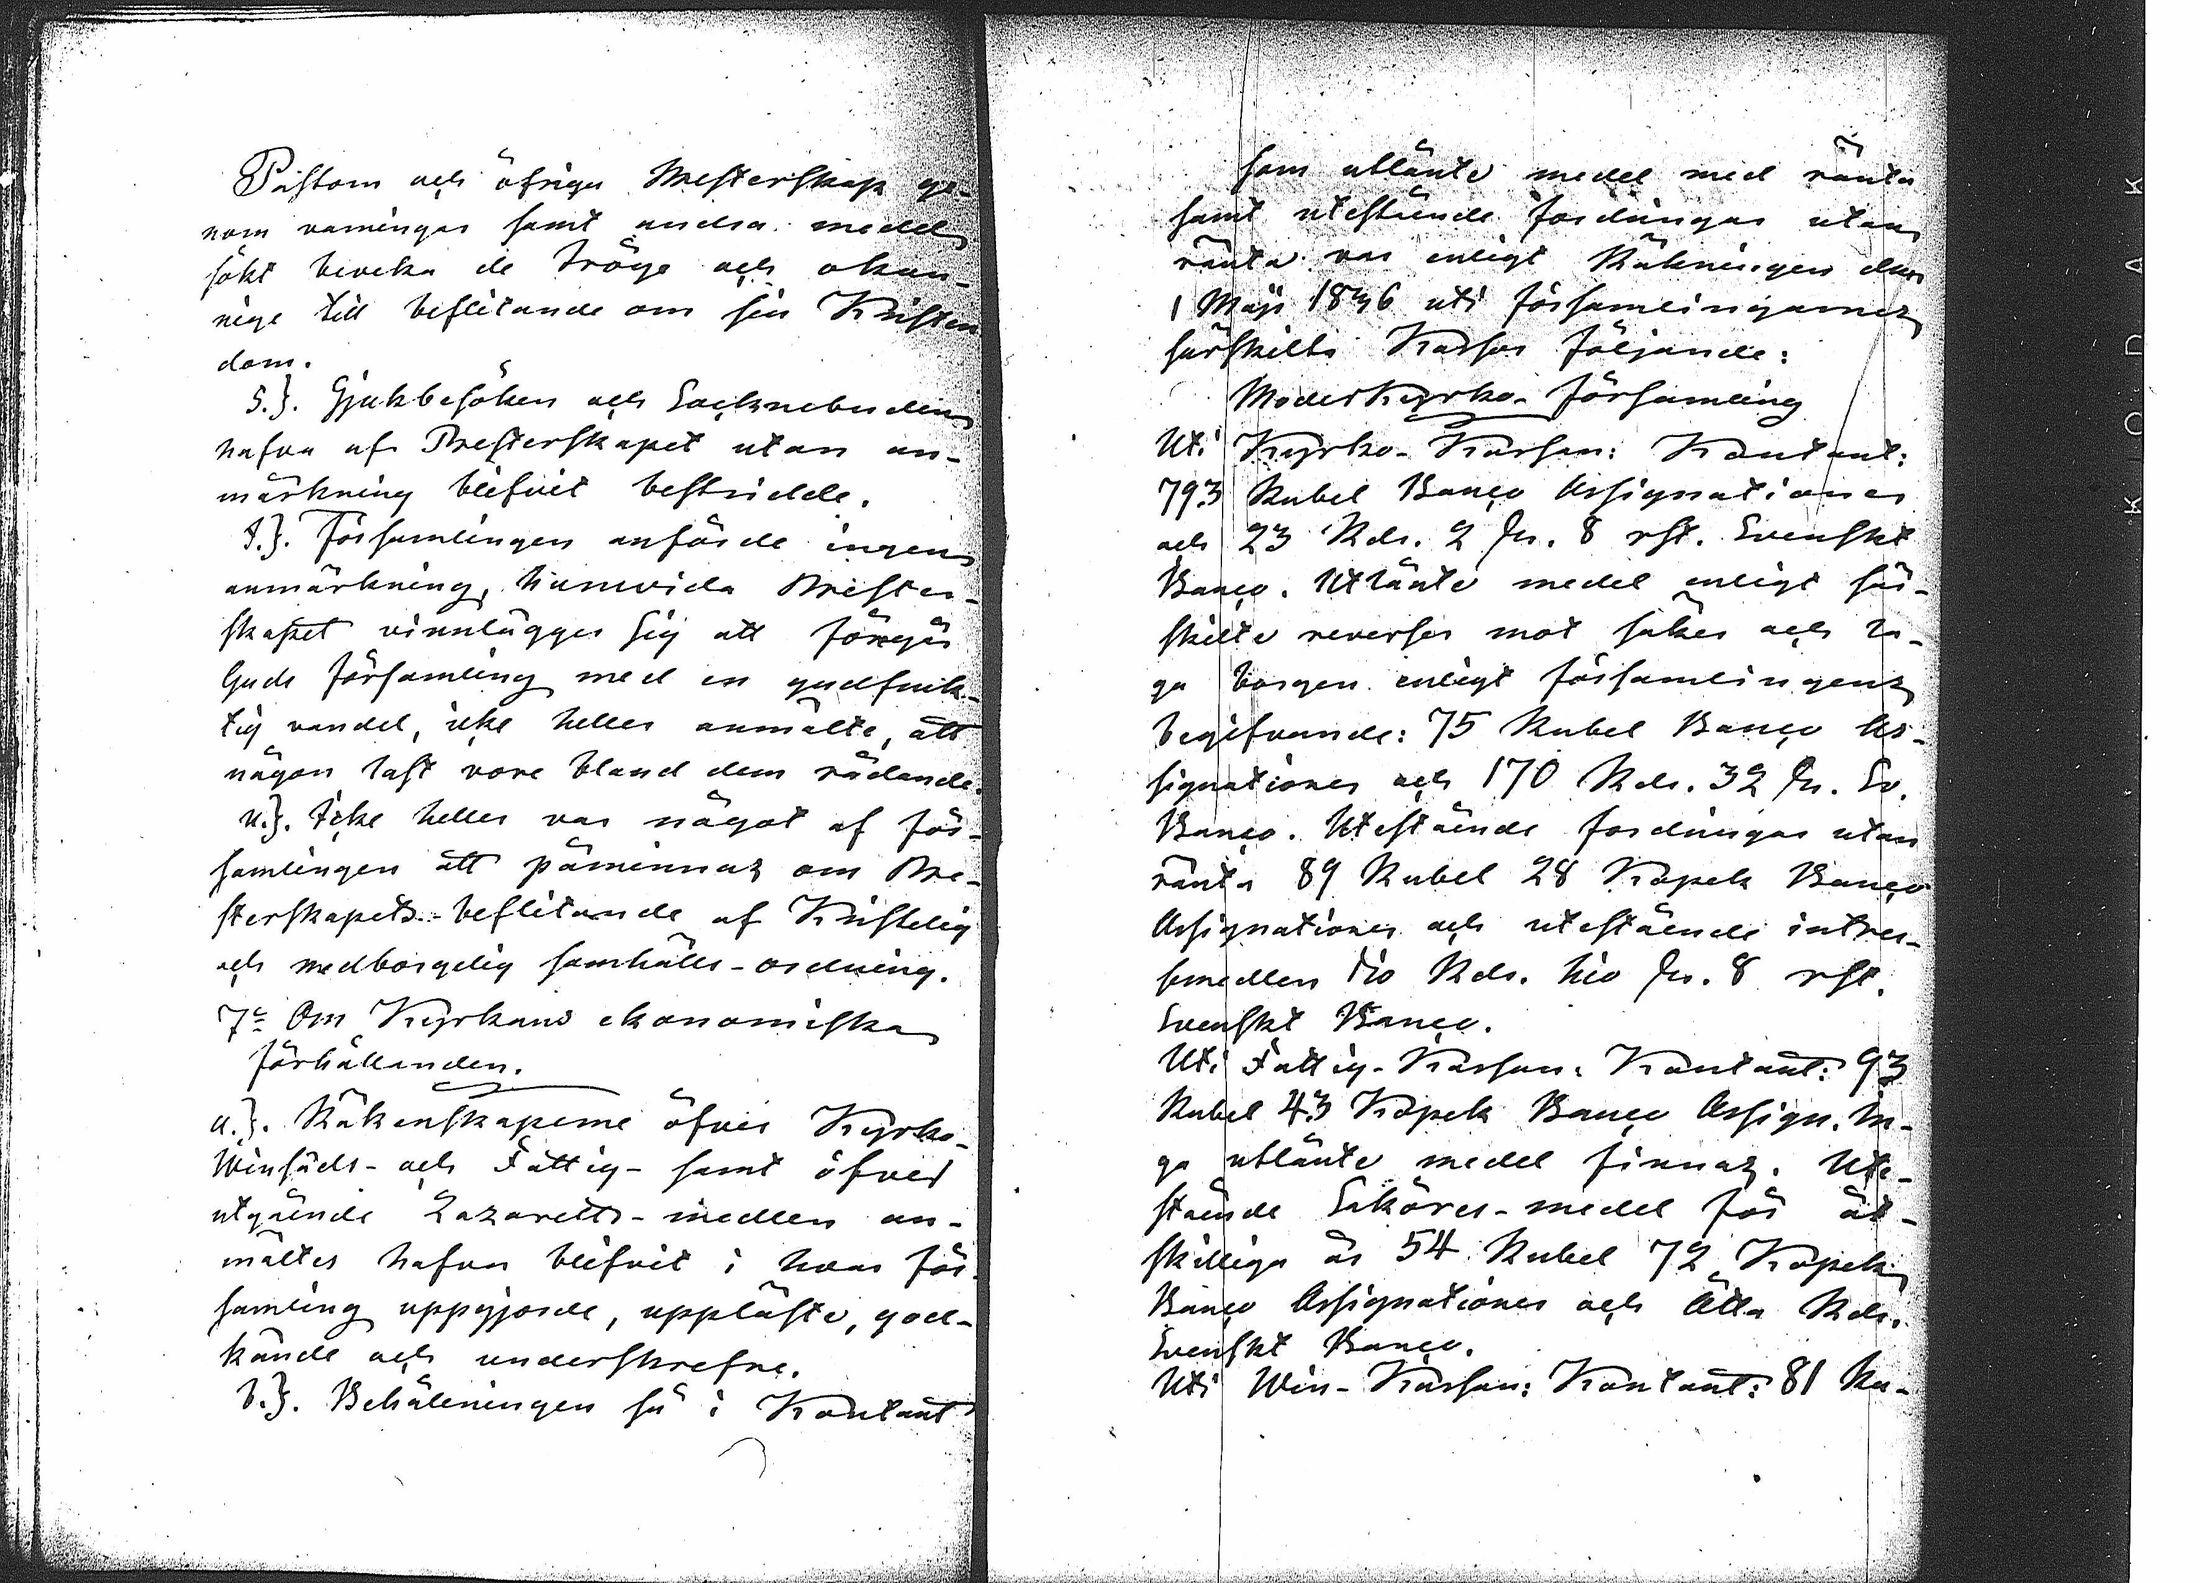 Pastorn och öfriga Presterskap ge-
nom varningar samt andra medel
sökt beveka de tröge och okun-
nige till beflitande om sin Kristen
dom.
s.}. Sjukbesöken och Socknebuden
hafva af Presterskapet utan an-
märkning blifvit bestridde.
t.}. Församlingen anförde ingen
anmärkning, huruvida Prester-
skapet vinnlägger sig att föregå
Guds församling med en gudfruk-
tig vandel, icke heller anmälte, att
någon last vore bland dem rådande.
u.}. Icke heller var något af för-
samlingen att påminnas om Pre-
sterskapets beflitande af Kristelig
och medborgelig samhälls-ordning.
7º Om Kyrkans ekonomiska
förhållanden.
a.}. Räkenskaperne öfver Kyrko-
Winsäds- och Fattig- samt öfver
utgående Lazaretts-medlen an-
mältes hafva blifvit i hvar för-
samling uppgjorde, uppläste, god-
kände och underskrefne.
b.}. Behållningen så i Kontant
som utlånte medel med ränta
samt utestående fordringar utan
ränta var enligt Räkningen den
1 Maji 1836 uti församlingarnes
särskilta Kassor följande:
Moderkyrko-församling
Uti Kyrko-Kassan: Kontant:
793 Rubel Banco Assignationer
och 23 Rdr. 2 sk. 8 rst. Svenskt
Banco. Utlånte medel enligt sär-
skilte reverser mot säker och la-
ga borgen enligt församlingens
begifvande: 75 Rubel Banco As-
signationer och 170 Rdr. 32 sk. Sv.
Banco. Utestående fordringar utan
ränta 89 Rubel 28 Kopek Banco
Assignationer och utestående intres-
semedlen tio Rdr. tio sk. 8 rst.
Svenskt Banco.
Uti Fattig-Kassan: Kontant: 93
Rubel 43 Kopek Banco Assign. In-
ga utlånte medel finnas. Ute-
stående Saköres-medel för åt-
skilliga år 54 Rubel 72 Kopek
Banco Assignationer och Åtta Rdr.
Svenskt Banco.
Uti Win-Kassan: Kontant: 81 Ru-
KODAK